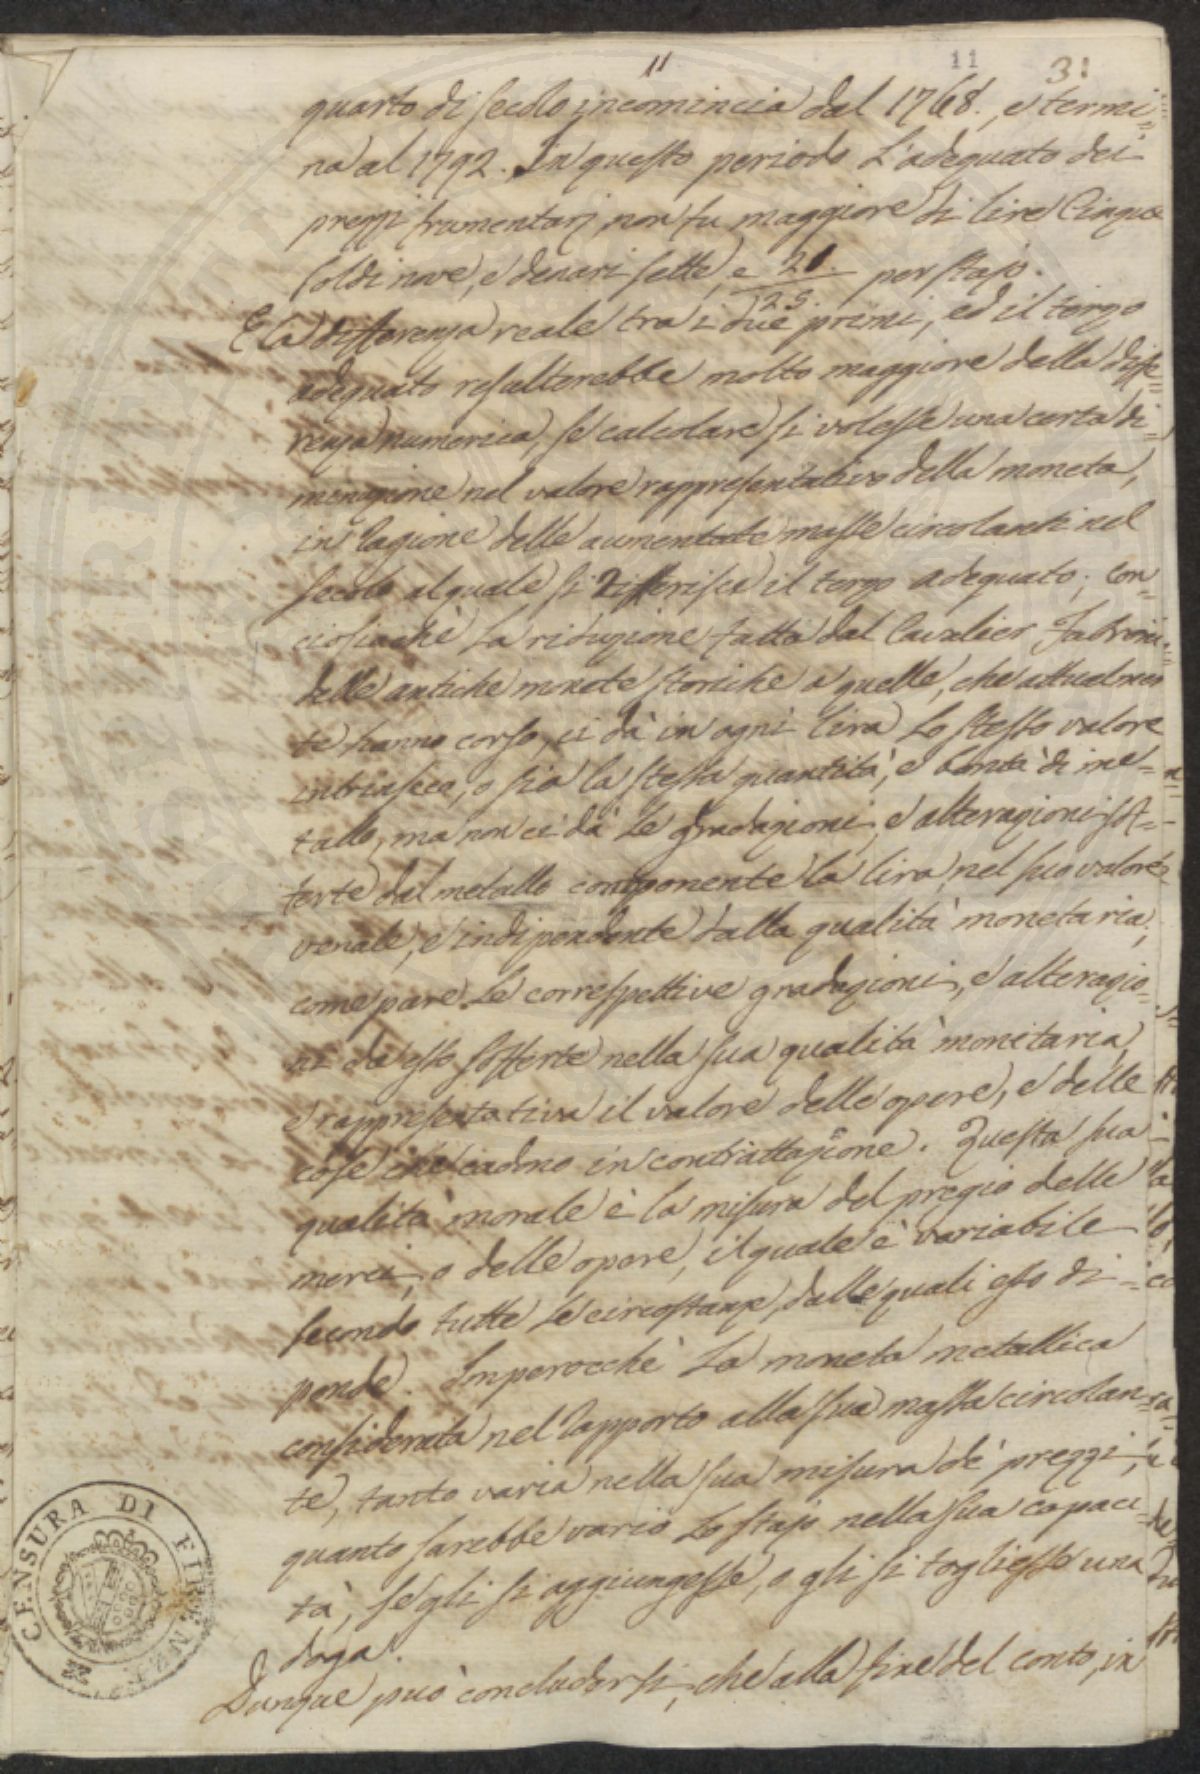 11 11 31
quarto di secolo incomincia dal 1768., e termi-
na al 1792. In questo periodo L'adequato dei
prezzi frumentarj non fu maggiore di lire Cinque
soldi nove, e denari sette, e 21./25. per stajo.
E la differenza reale tra i due primi, ed il terzo
adequato resulterebbe molto maggiore della diffe=
renza numerica, se calcolare si volesse una certa di=
minuzione nel valore rappresentativo della moneta,
in ragione delle aumentate masse circolanti nel
secolo al quale si riferisce il terzo adequato; con-
ciosiachè La riduzione fatta dal Cavalier Fabroni
delle antiche monete storiche a quelle, che attualmen
te hanno corso, ci dà in ogni lira Lo stesso valore
intrinseco, o sia la stessa quantità, e bontà di me=
tallo, ma non ci dà Le gradazioni, e alterazioni sof=
ferte dal metallo componente la lira nel suo valore
venale, e indipendente dalla qualità monetaria,
come pare Le correspettive gradazioni, e alterazio=
ni da esso sofferte nella sua qualità monetaria,
e rappresentativa il valore delle opere, e delle
cose che cadono in contrattazione. Questa sua
qualità morale è la misura del pregio delle
merci, o delle opere, il quale è variabile
secondo tutte Le circostanze, dalle quali esso di=
pende. Imperocchè La moneta metallica
considerata nel rapporto alla sua massa circolan=
te, tanto varia nella sua misura de' prezzi,
quanto sarebbe vario Lo stajo nella sua capaci
tà, se gli si aggiungesse, o gli si togliesse una
doga.
Dunque può concludersi, che alla fine del conto, in
CENSURA DI FIRENZE